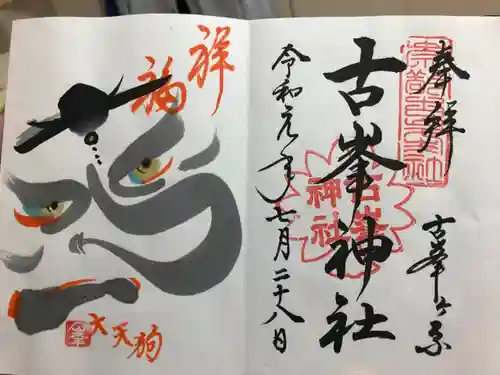 奉拝
古峯ヶ原
古峯神社
古峯神社
令和元年七月二十八日
祥
福
大天狗